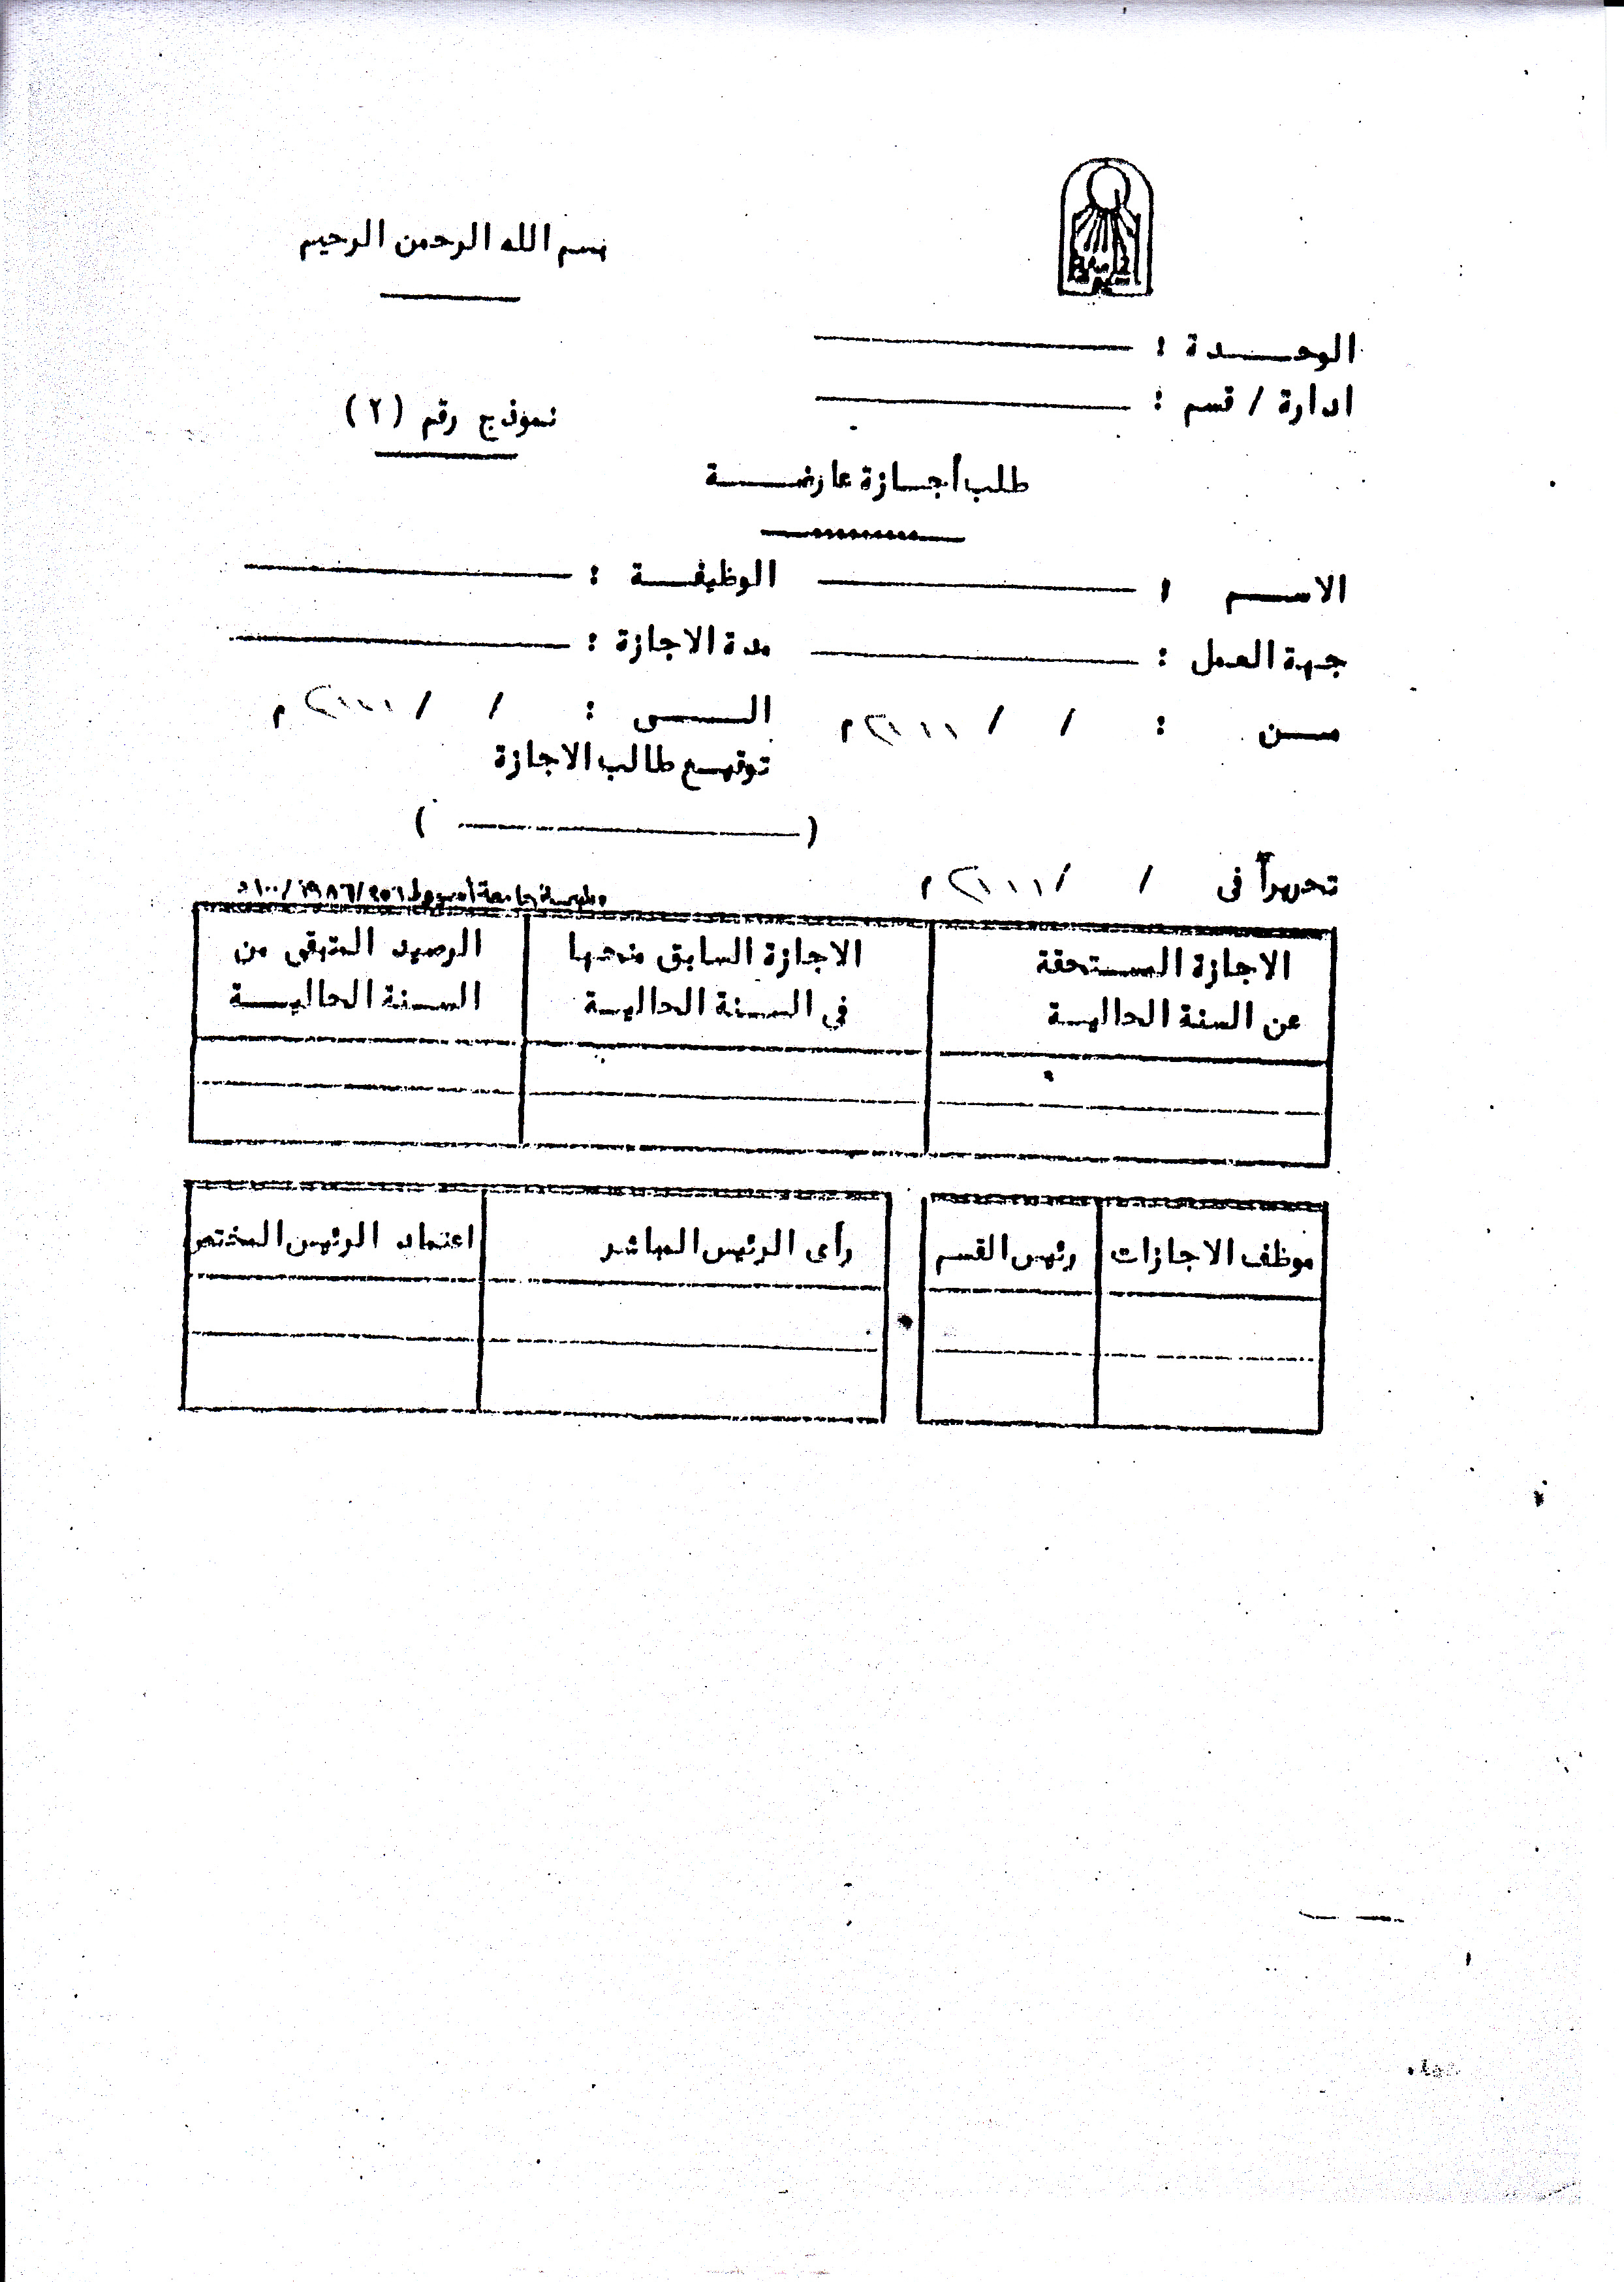 بسم الله الرحمن الرحيم
الوحـــدة :
ادارة / قسم :
نموذج رقم (٢)
طلب أجـازة عارضـــة
الاســم :
الوظيفــة :
جهة العمل :
مدة الاجازة :
مــن : / / م
الـــى : / / م
توقيـع طالب الاجازة
( )
تحريراً فى / / م
جامعة أسيوط
الاجازة المستحقة
عن السنة الحاليـة
الاجازة السابق منحها
فى السـنة الحاليـة
الرصيد المتبقى من
السـنة الحاليـــة
موظف الاجازات
رئيس القسم
رأى الرئيس المباشر
اعتماد الرئيس المختص